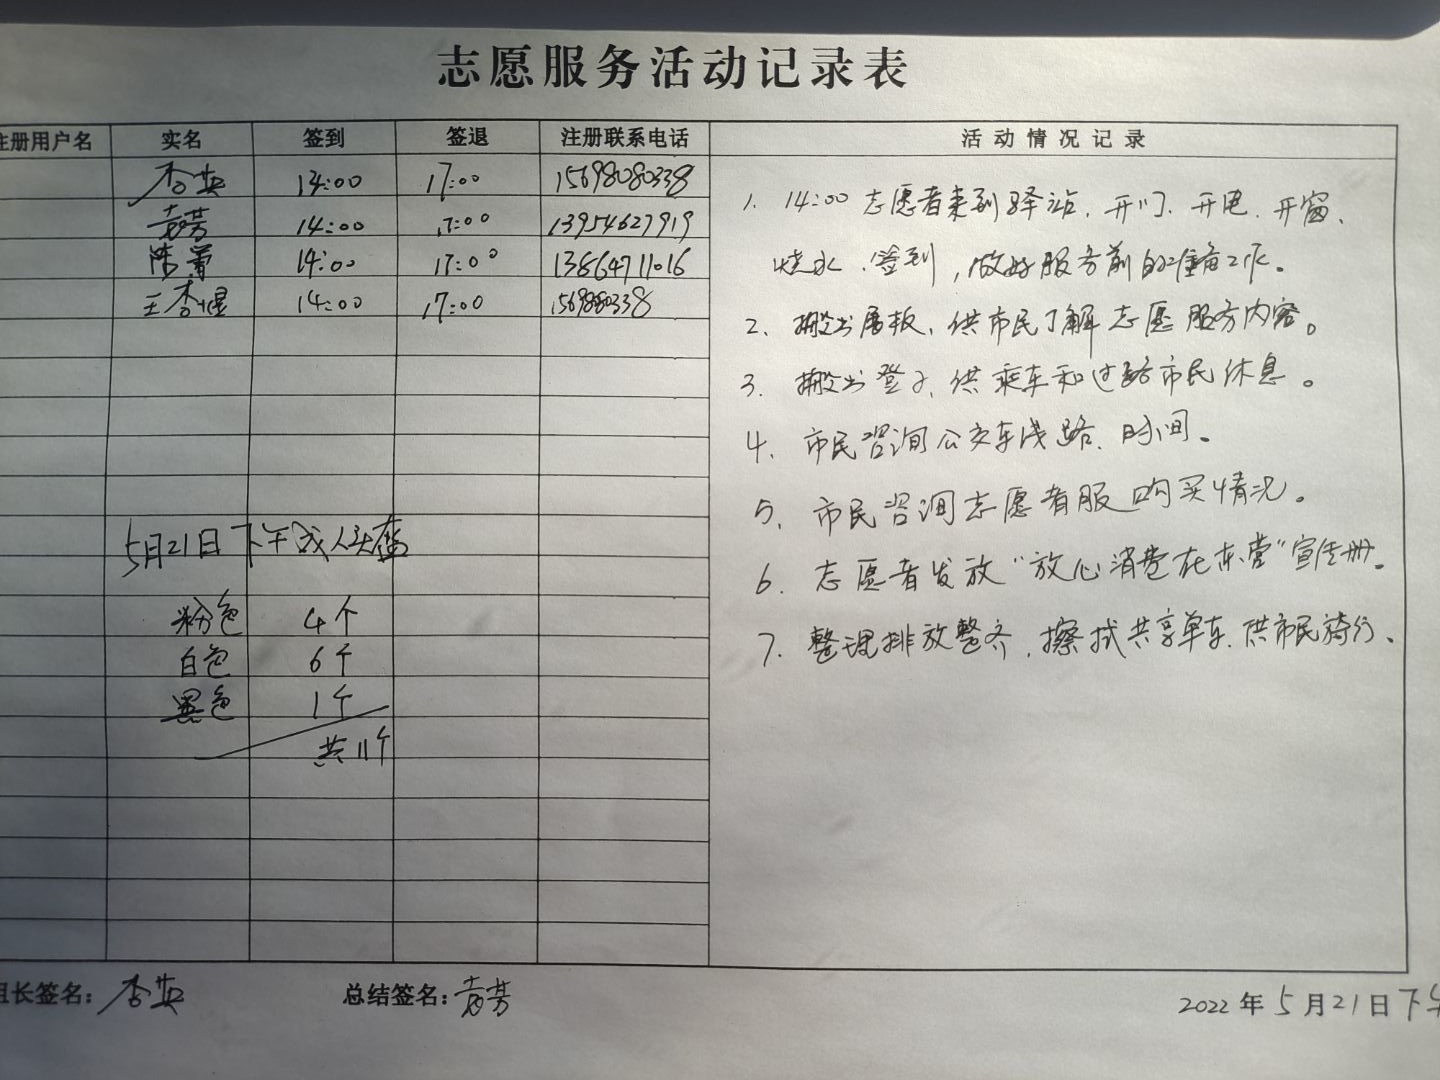 志愿服务活动记录表
注册用户名 实名 签到 签退 注册联系电话 活动情况记录
李英 14:00 17:00 15698080338
袁芳 14:00 17:00 13954627919
陈蕾 14:00 17:00 13864711016
王李煜 14:00 17:00 1569880338
1. 14:00 志愿者来到驿站、开门、开电、开窗、
烧水、签到,做好服务前的准备工作。
2、搬出展板、供市民了解志愿服务内容。
3、搬出登子、供乘车和过路市民休息。
4、市民咨询公交车线路、时间。
5、市民咨询志愿者服购买情况。
6、志愿者发放“放心消费在东营”宣传册。
7、整理排放整齐、擦拭共享单车、供市民骑行、
5月21日下午成人头盔
粉色 4个
白色 6个
黑色 1个
共11个
组长签名:李英 总结签名:袁芳 2022年5月21日下午